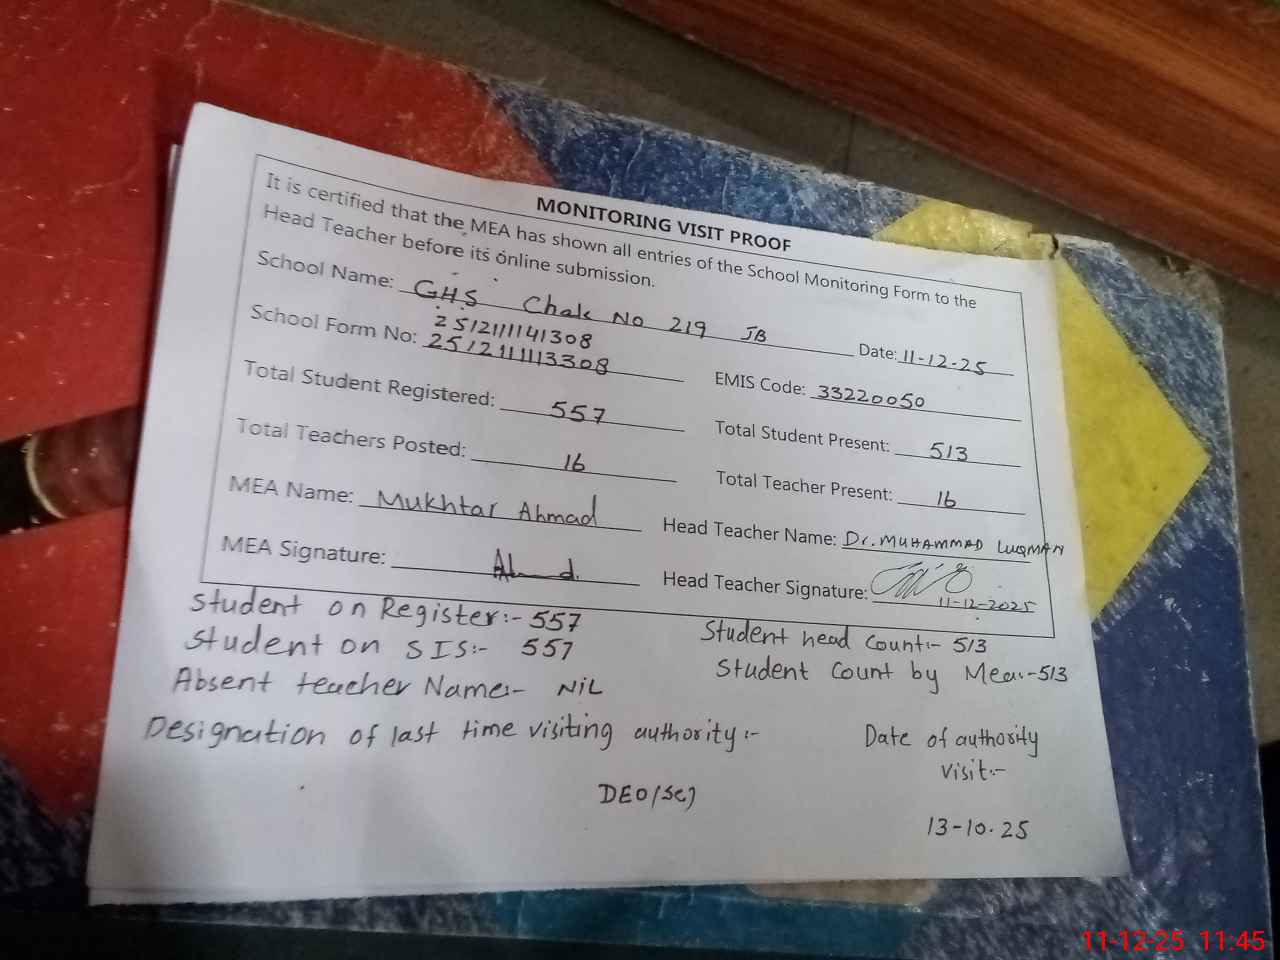 MONITORING VISIT PROOF
It is certified that the MEA has shown all entries of the School Monitoring Form to the
Head Teacher before its online submission.
School Name: GHS Chak No 219 JB Date: 11-12-25
2512111141308
School Form No: 2512111113308 EMIS Code: 33220050
Total Student Registered: 557 Total Student Present: 513
Total Teachers Posted: 16 Total Teacher Present: 16
MEA Name: Mukhtar Ahmad Head Teacher Name: Dr. MUHAMMAD LUQMAN
MEA Signature: Head Teacher Signature:
11-12-2025
Student on Register:- 557 Student head count:- 513
Student on SIS:- 557 Student Count by Mea:-513
Absent teacher Name:- NiL
Designation of last time visiting authority:- Date of authority
visit:-
DEO(SE)
13-10-25
11-12-25 11:45